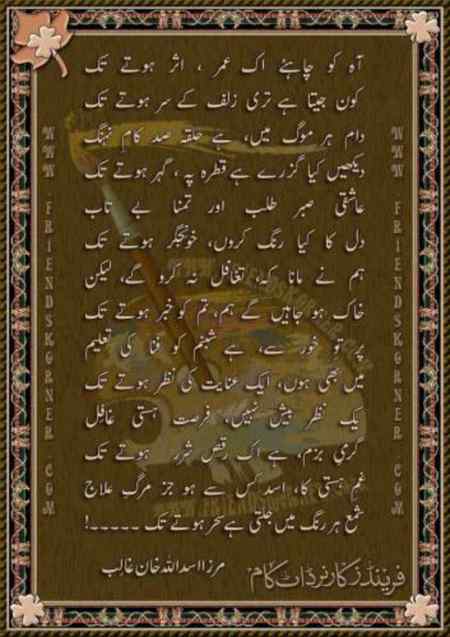 آہ کو چاہئے اک عمر ، اثر ہوتے تک
کون جیتا ہے تری زلف کے سر ہوتے تک
دام ہر موگ میں، ہے حلقہ صد کام نہنگ
دیکھیں کیا گزرے ہے قطرہ پہ ، گہر ہوتے تک
عاشقی صبر طلب اور تمنا بے تاب
دل کا کیا رنگ کروں، خونِجگر ہوتے تک
ہم نے مانا کہ، تغافل نہ کرو گے، لیکن
خاک ہو جایں گے ہم، تم کو خبر ہوتے تک
پر تو خور سے، ہے شبنم کو فنا کی تعلیم
میں بھی ہوں، ایک عنایت کی نظر ہوتے تک
یک نظر بیش نہیں، فرصت ہستی غافل
گرمیِ بزم، ہے اک رقصِ شرر ہوتے تک
غمِ ہستی کا، اسد کس سے ہو جز مرگِ علاج
شمع ہر رنگ میں جلتی ہے سحر ہوتے تک -----!
مرزا اسد اللہ خان غالب
فرینڈز کارنر ڈاٹ کام
WWW FRIENDSKORNER COM
WWW FRIENDSKORNER COM